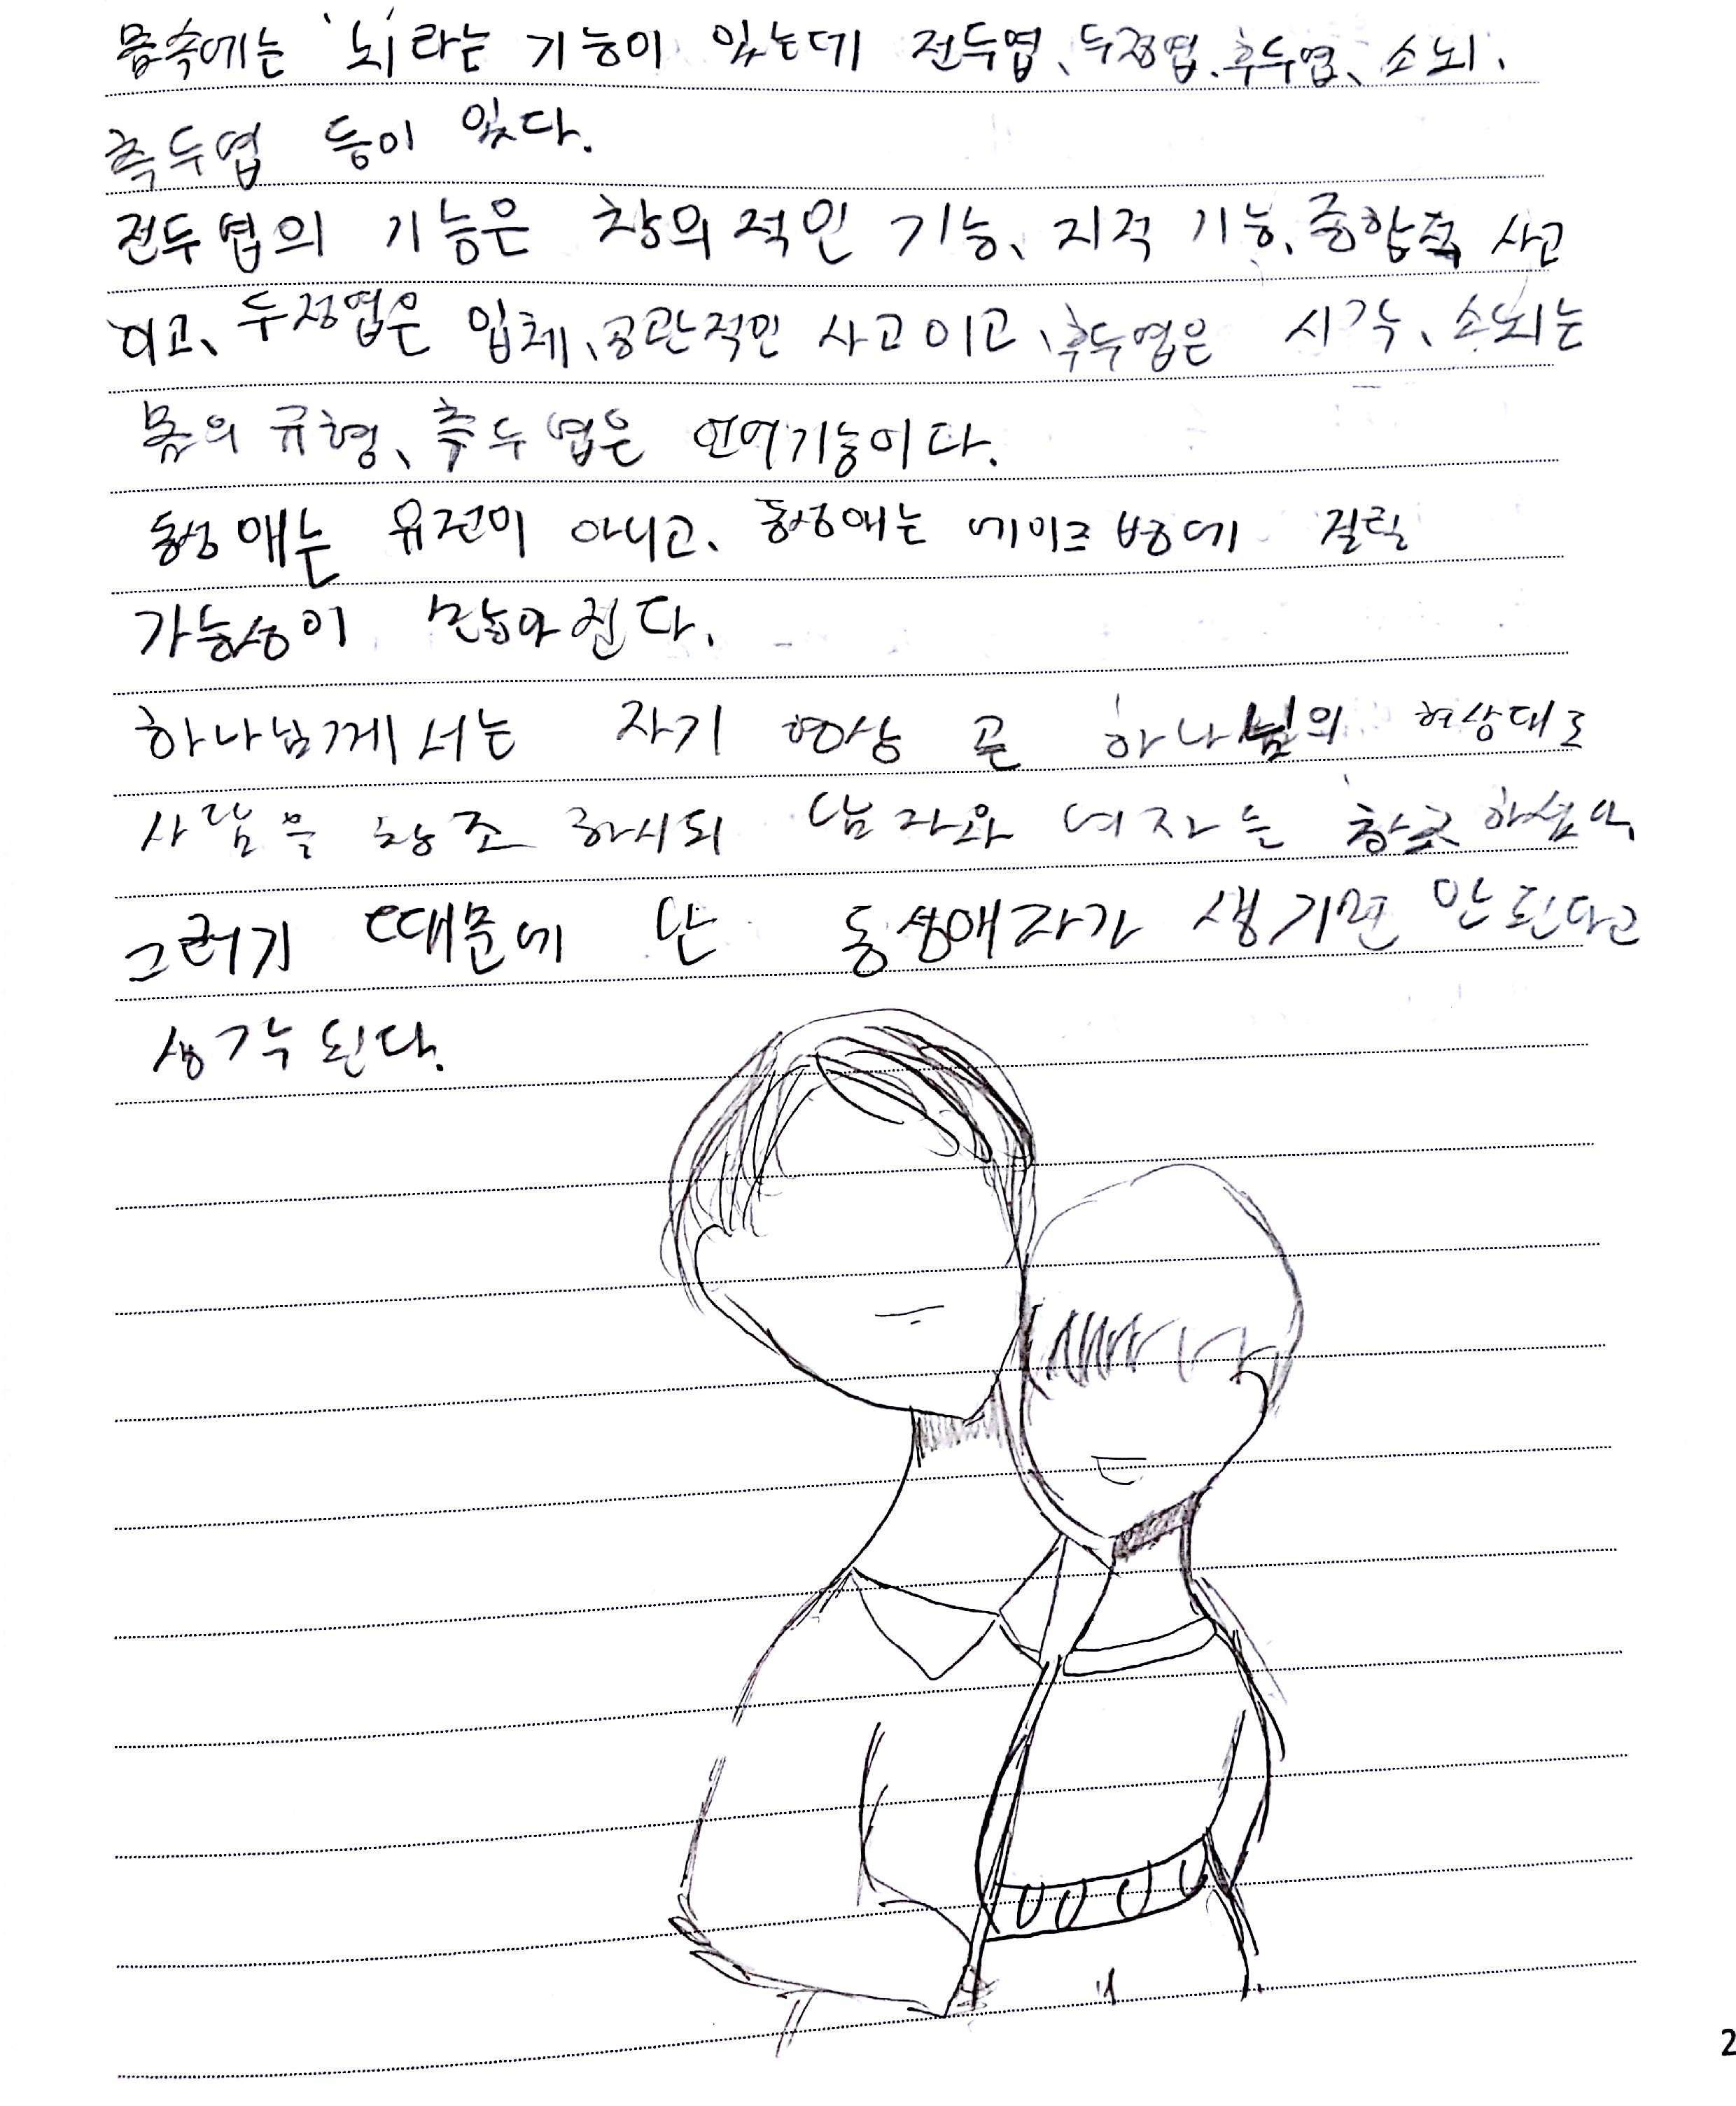 몸속에는 '뇌'라는 기능이 있는데 전두엽、두정엽、후두엽、소뇌、
측두엽 등이 있다.
전두엽의 기능은 창의적인 기능、지적 기능、종합적 사고
이고、두정엽은 입체、공관적인 사고이고、후두엽은 시각、소뇌는
몸의 규형、측두엽은 언어기능이다.
동성애는 유전이 아니고、동성애는 에이즈 병에 걸릴
가능성이 많아진다.
하나님께서는 자기 형상 곧 하나님의 형상대로
사람을 창조 하시되 남자와 여자는 창조하셨다.
그러기 때문에 난 동성애자가 생기면 안 된다고
생각 된다.
2